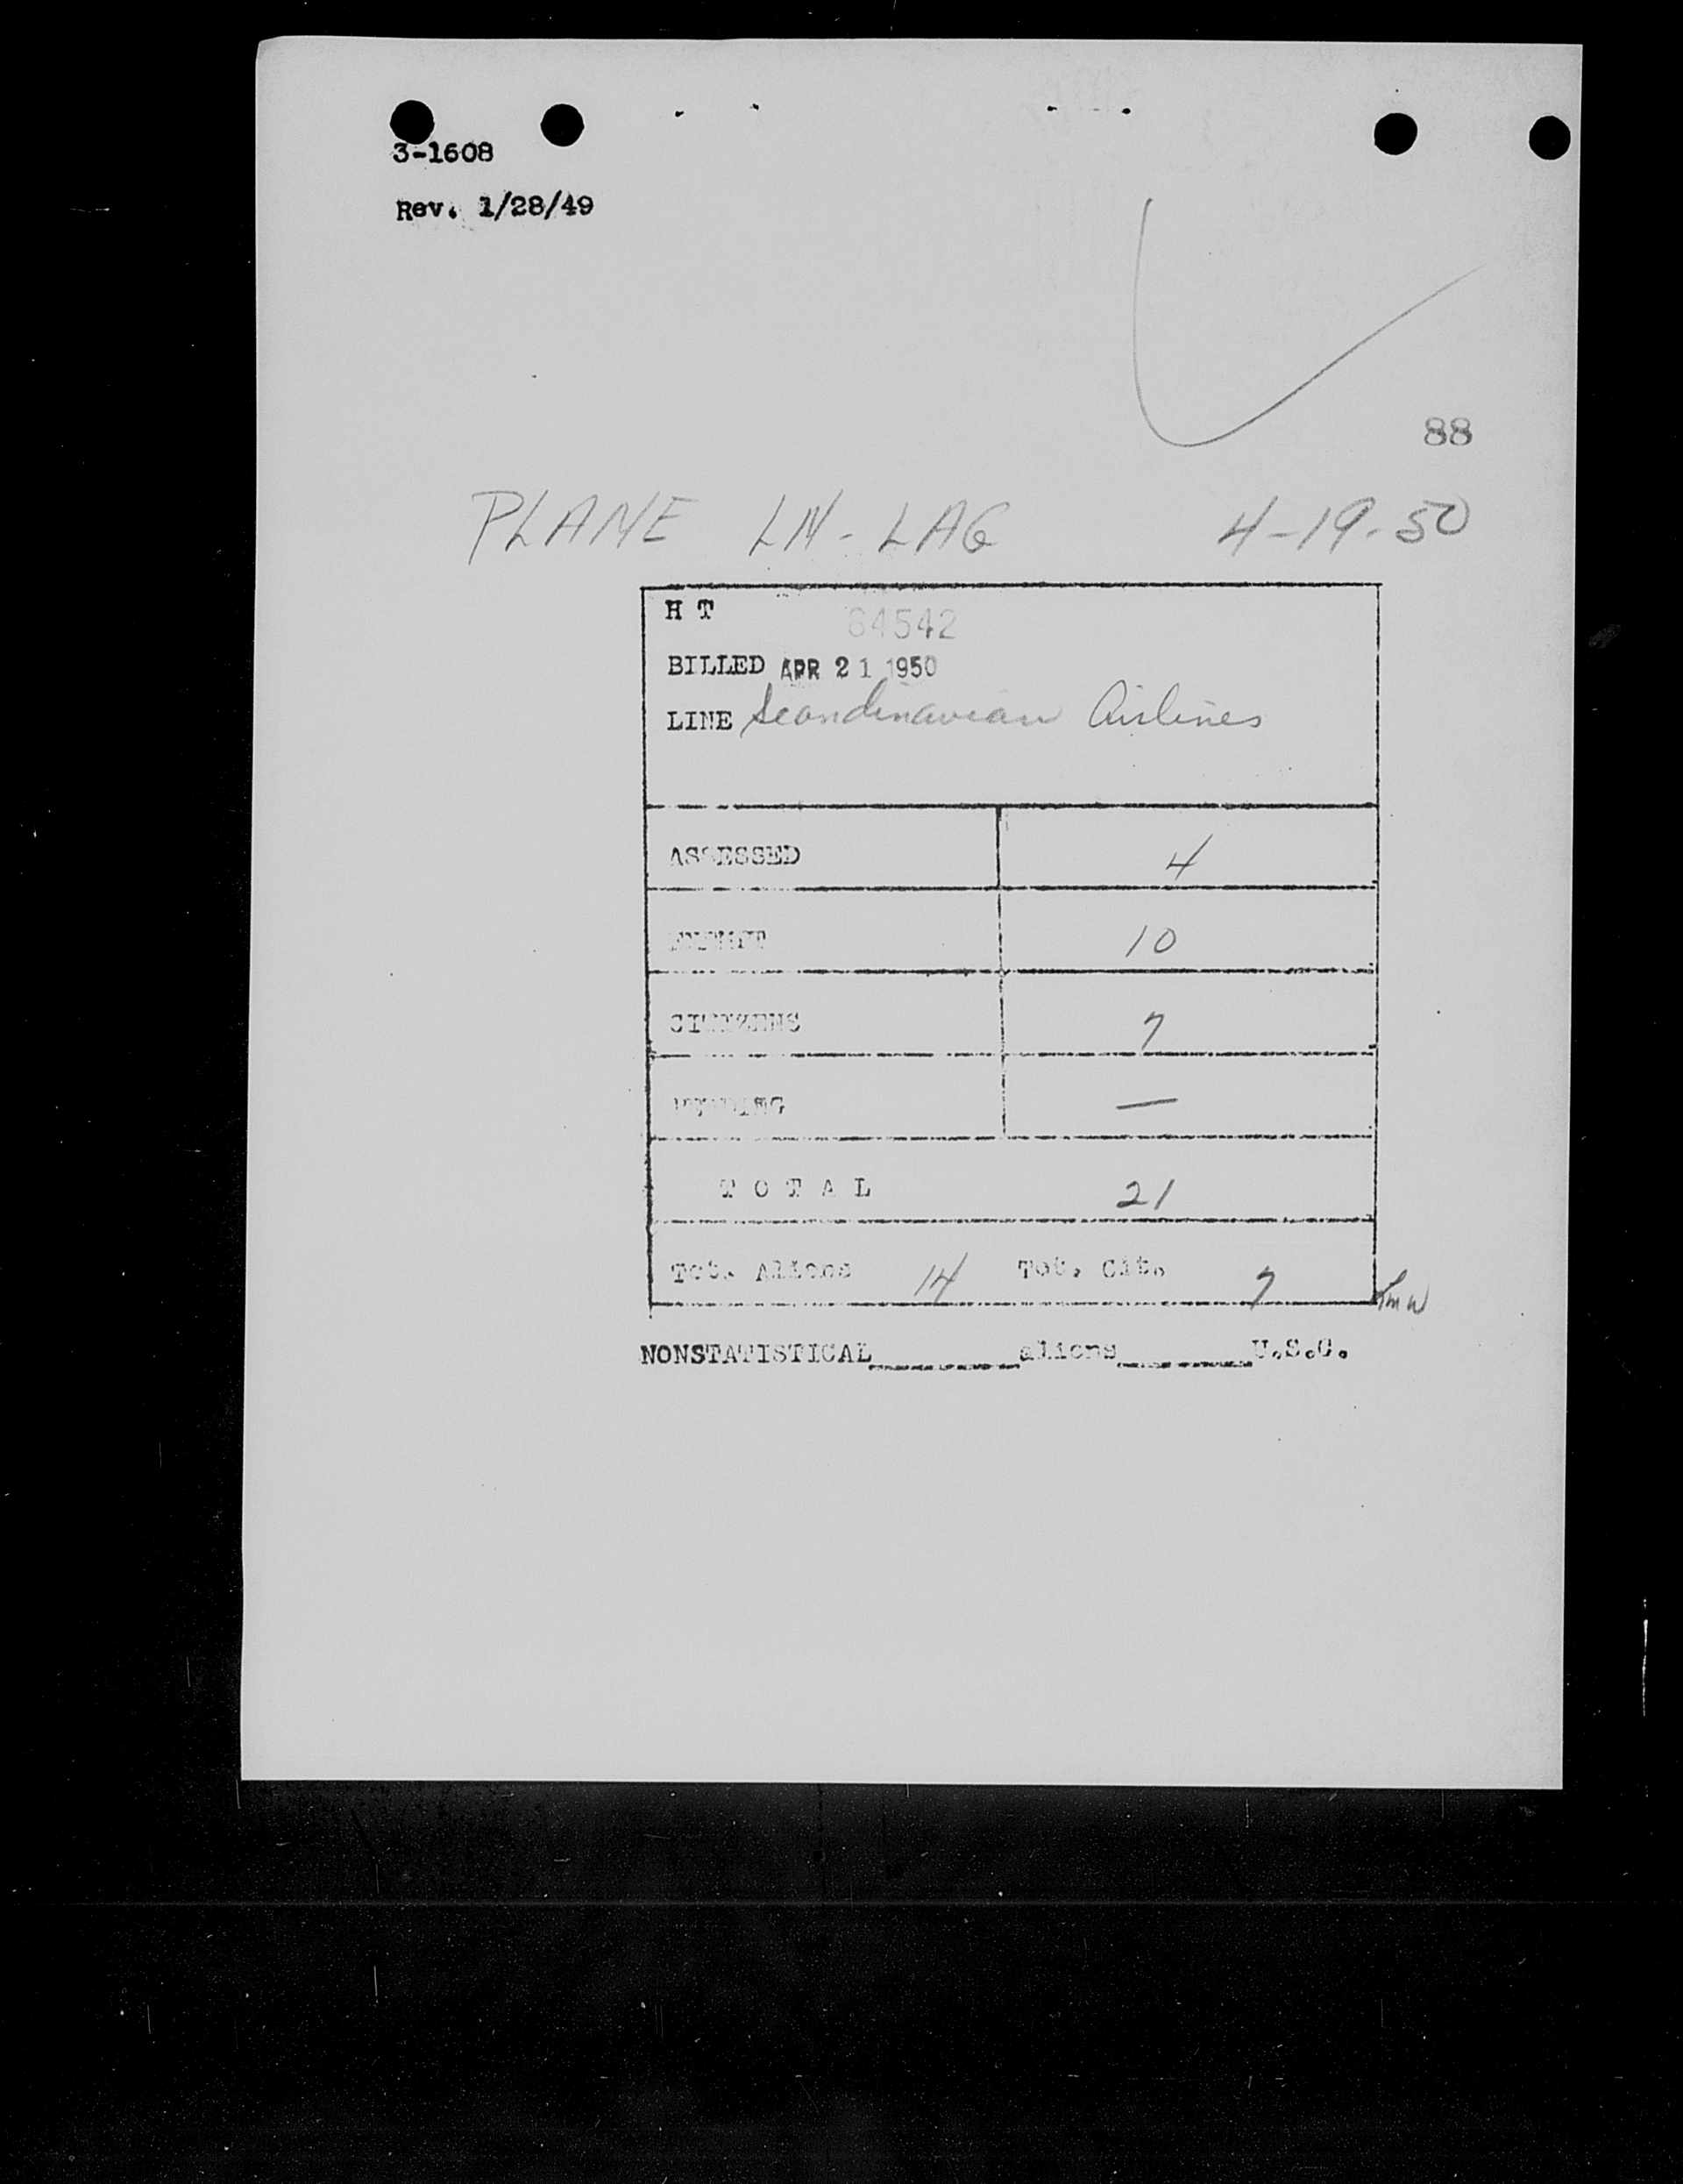 3-1608
Rev. 1/28/49
88
PLANE LN-LAG 4-19-50
H T 64542
BILLED APR 21 1950
LINE Scandinavian Airlines
ASSESSED 4
EXEMPT 10
CITIZENS 7
PENDING —
T O T A L 21
Tot. Aliens 14 Tot. Cit. 7
NONSTATISTICAL__________aliens__________U.S.C.